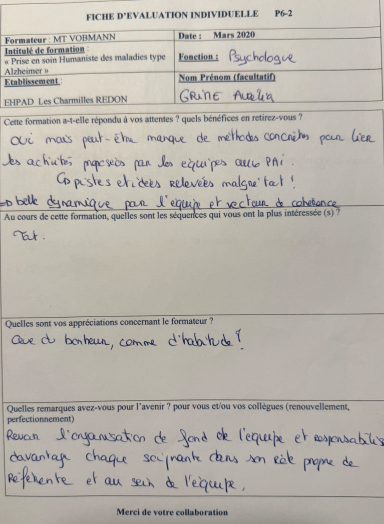 FICHE D'EVALUATION INDIVIDUELLE P6-2
Formateur : MT VOBMANN
Date : Mars 2020
Intitulé de formation :
« Prise en soin Humaniste des maladies type
Alzheimer »
Fonction : Psychologue
Etablissement :
EHPAD Les Charmilles REDON
Nom Prénom (facultatif)
GRINE Aurélia
Cette formation a-t-elle répondu à vos attentes ? quels bénéfices en retirez-vous ?
Oui mais peut-être manque de méthodes concrètes pour lier
les activités proposées par les équipes aux PAI.
pistes et idées relevées malgré tout !
=> belle dynamique pour l'équipe et vecteur de cohérence
Au cours de cette formation, quelles sont les séquences qui vous ont la plus intéressée (s) ?
Tout.
Quelles sont vos appréciations concernant le formateur ?
Que du bonheur, comme d'habitude !
Quelles remarques avez-vous pour l'avenir ? pour vous et/ou vos collègues (renouvellement,
perfectionnement)
Revoir l'organisation de fond de l'équipe et responsabiliser
davantage chaque soignante dans son rôle propre de
Référente et au sein de l'équipe.
Merci de votre collaboration